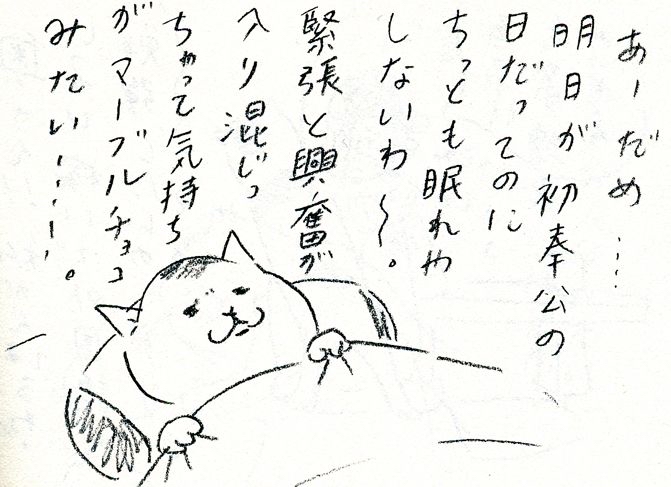 あーだめ…
明日が初奉公の
日だってのに
ちっとも眠れや
しないわ〜。
緊張と興奮が
入り混じっ
ちゃって気持ち
がマーブルチョコ
みたい……。